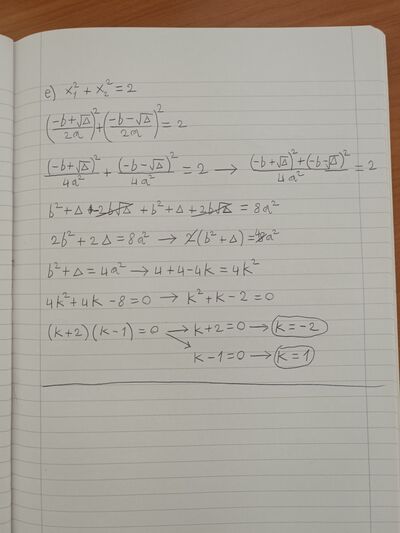 e) x₁² + x₂² = 2
((-b+√Δ)/2a)² + ((-b-√Δ)/2a)² = 2
(-b+√Δ)²/4a² + (-b-√Δ)²/4a² = 2 → ((-b+√Δ)²+(-b-√Δ)²)/4a² = 2
b² + Δ - 2b√Δ + b² + Δ + 2b√Δ = 8a²
2b² + 2Δ = 8a² → 2(b² + Δ) = 8a² 4
b² + Δ = 4a² → 4 + 4 - 4k = 4k²
4k² + 4k - 8 = 0 → k² + k - 2 = 0
(k+2)(k-1) = 0 → k+2 = 0 → k = -2
k-1 = 0 → k = 1